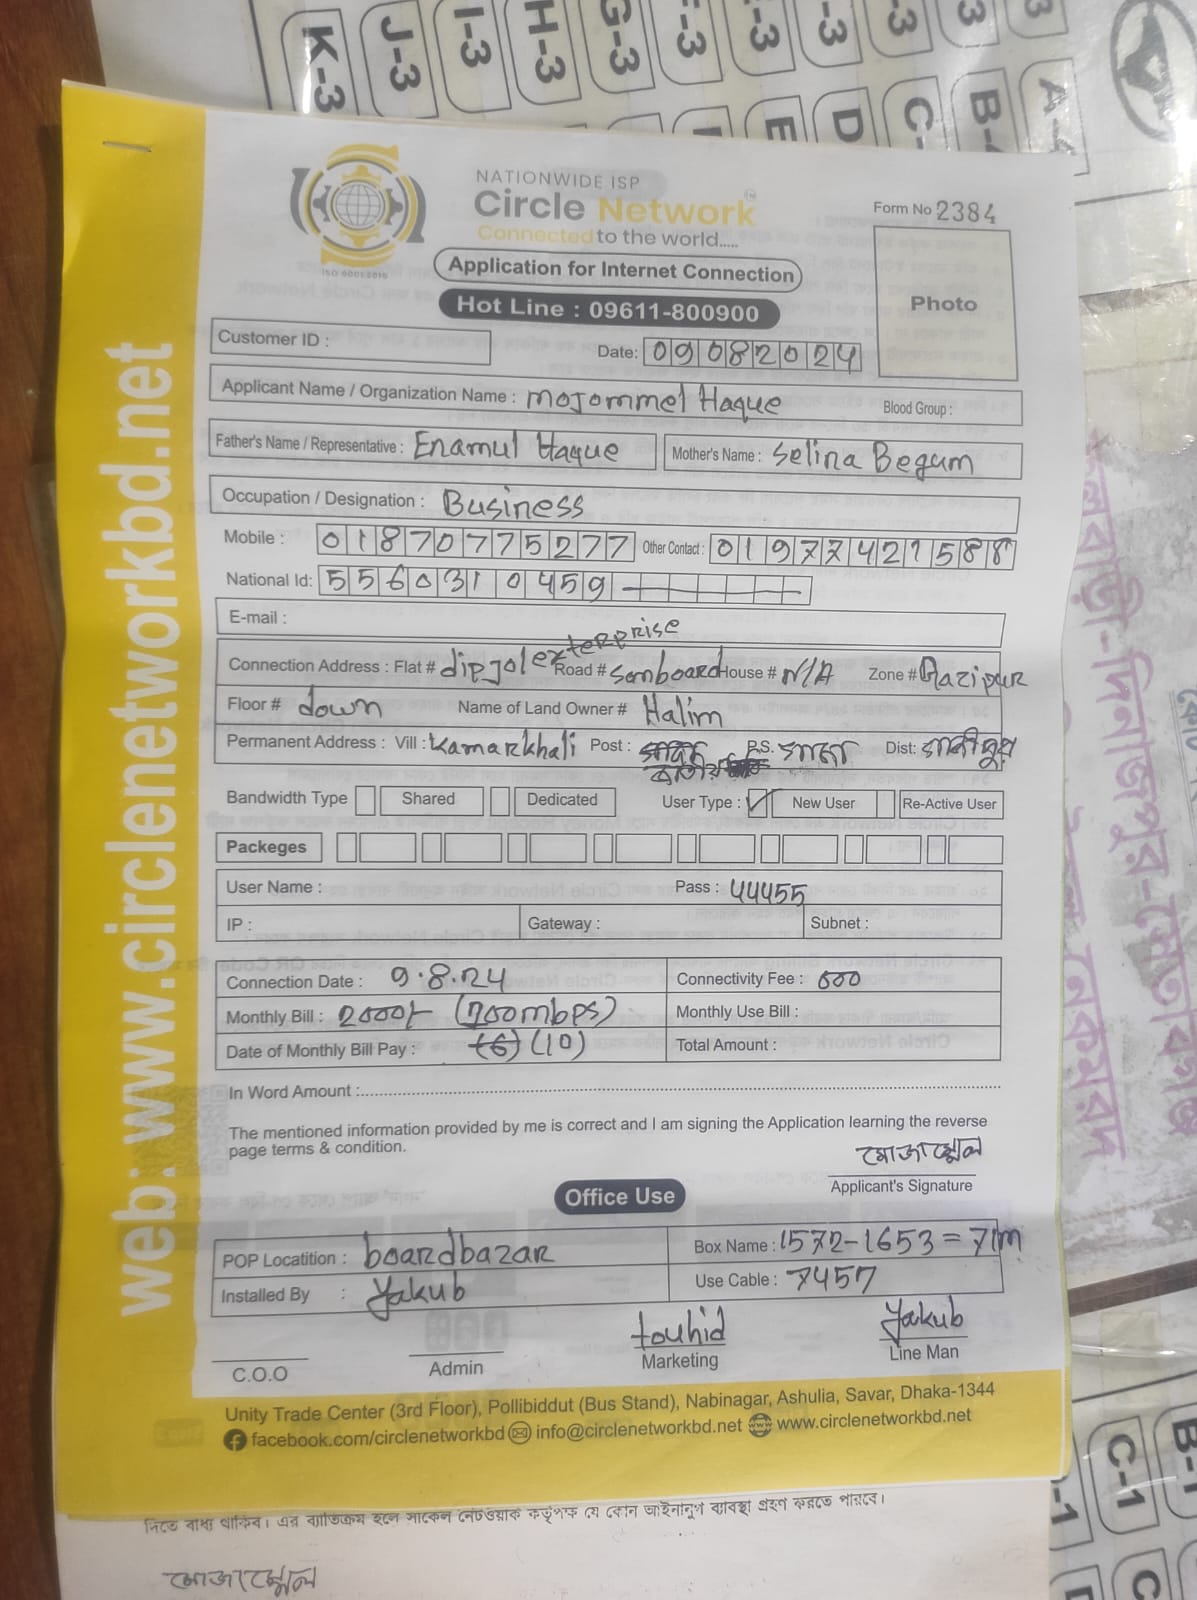 K-3 J-3 I-3 H-3 G-3 -3 -3 -3 -3 3 3
E D C- B-4 A-4
NATIONWIDE ISP
Circle Network
Connected to the world.....
ISO 9001:2015
Form No 2384
Application for Internet Connection
Photo
Hot Line : 09611-800900
Customer ID :
Date: 09082024
Applicant Name / Organization Name : Mojommel Haque Blood Group :
Father's Name / Representative : Enamul Haque Mother's Name : Selina Begum
Occupation / Designation : Business
Mobile : 01870775277 Other Contact : 01977421588
National Id: 5560310459
E-mail :
Connection Address : Flat # dipjol exterprise Road # Sonboard House # N/A Zone # Gazipur
Floor # down Name of Land Owner # Halim
Permanent Address : Vill : Kamarkhali Post : P.S. Dist: গাজীপুর
Bandwidth Type Shared Dedicated User Type : ✓ New User Re-Active User
Packeges
User Name : Pass : 44455
IP : Gateway : Subnet :
Connection Date : 9.8.24 Connectivity Fee : 000
Monthly Bill : 2000/- (200mbps) Monthly Use Bill :
Date of Monthly Bill Pay : (6) (10) Total Amount :
In Word Amount :
The mentioned information provided by me is correct and I am signing the Application learning the reverse
page terms & condition.
মোজাম্মেল
Applicant's Signature
Office Use
POP Locatition : boardbazar Box Name : 1572-1653 = 71m
Installed By : Yakub Use Cable : 7457
touhid Yakub
C.O.O Admin Marketing Line Man
Unity Trade Center (3rd Floor), Pollibiddut (Bus Stand), Nabinagar, Ashulia, Savar, Dhaka-1344
facebook.com/circlenetworkbd info@circlenetworkbd.net www.circlenetworkbd.net
web: www.circlenetworkbd.net
দিতে বাধ্য থাকিব। এর ব্যতিক্রম হলে সার্কেল নেটওয়াক কর্তৃপক্ষ যে কোন আইনানুগ ব্যাবস্থা গ্রহণ করতে পারবে।
মোজাম্মেল
C-1 B-1